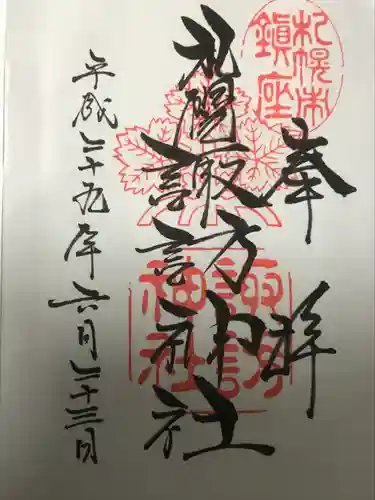 奉拝
札幌市鎮座
札幌諏訪神社
諏訪神社
平成二十九年六月二十三日